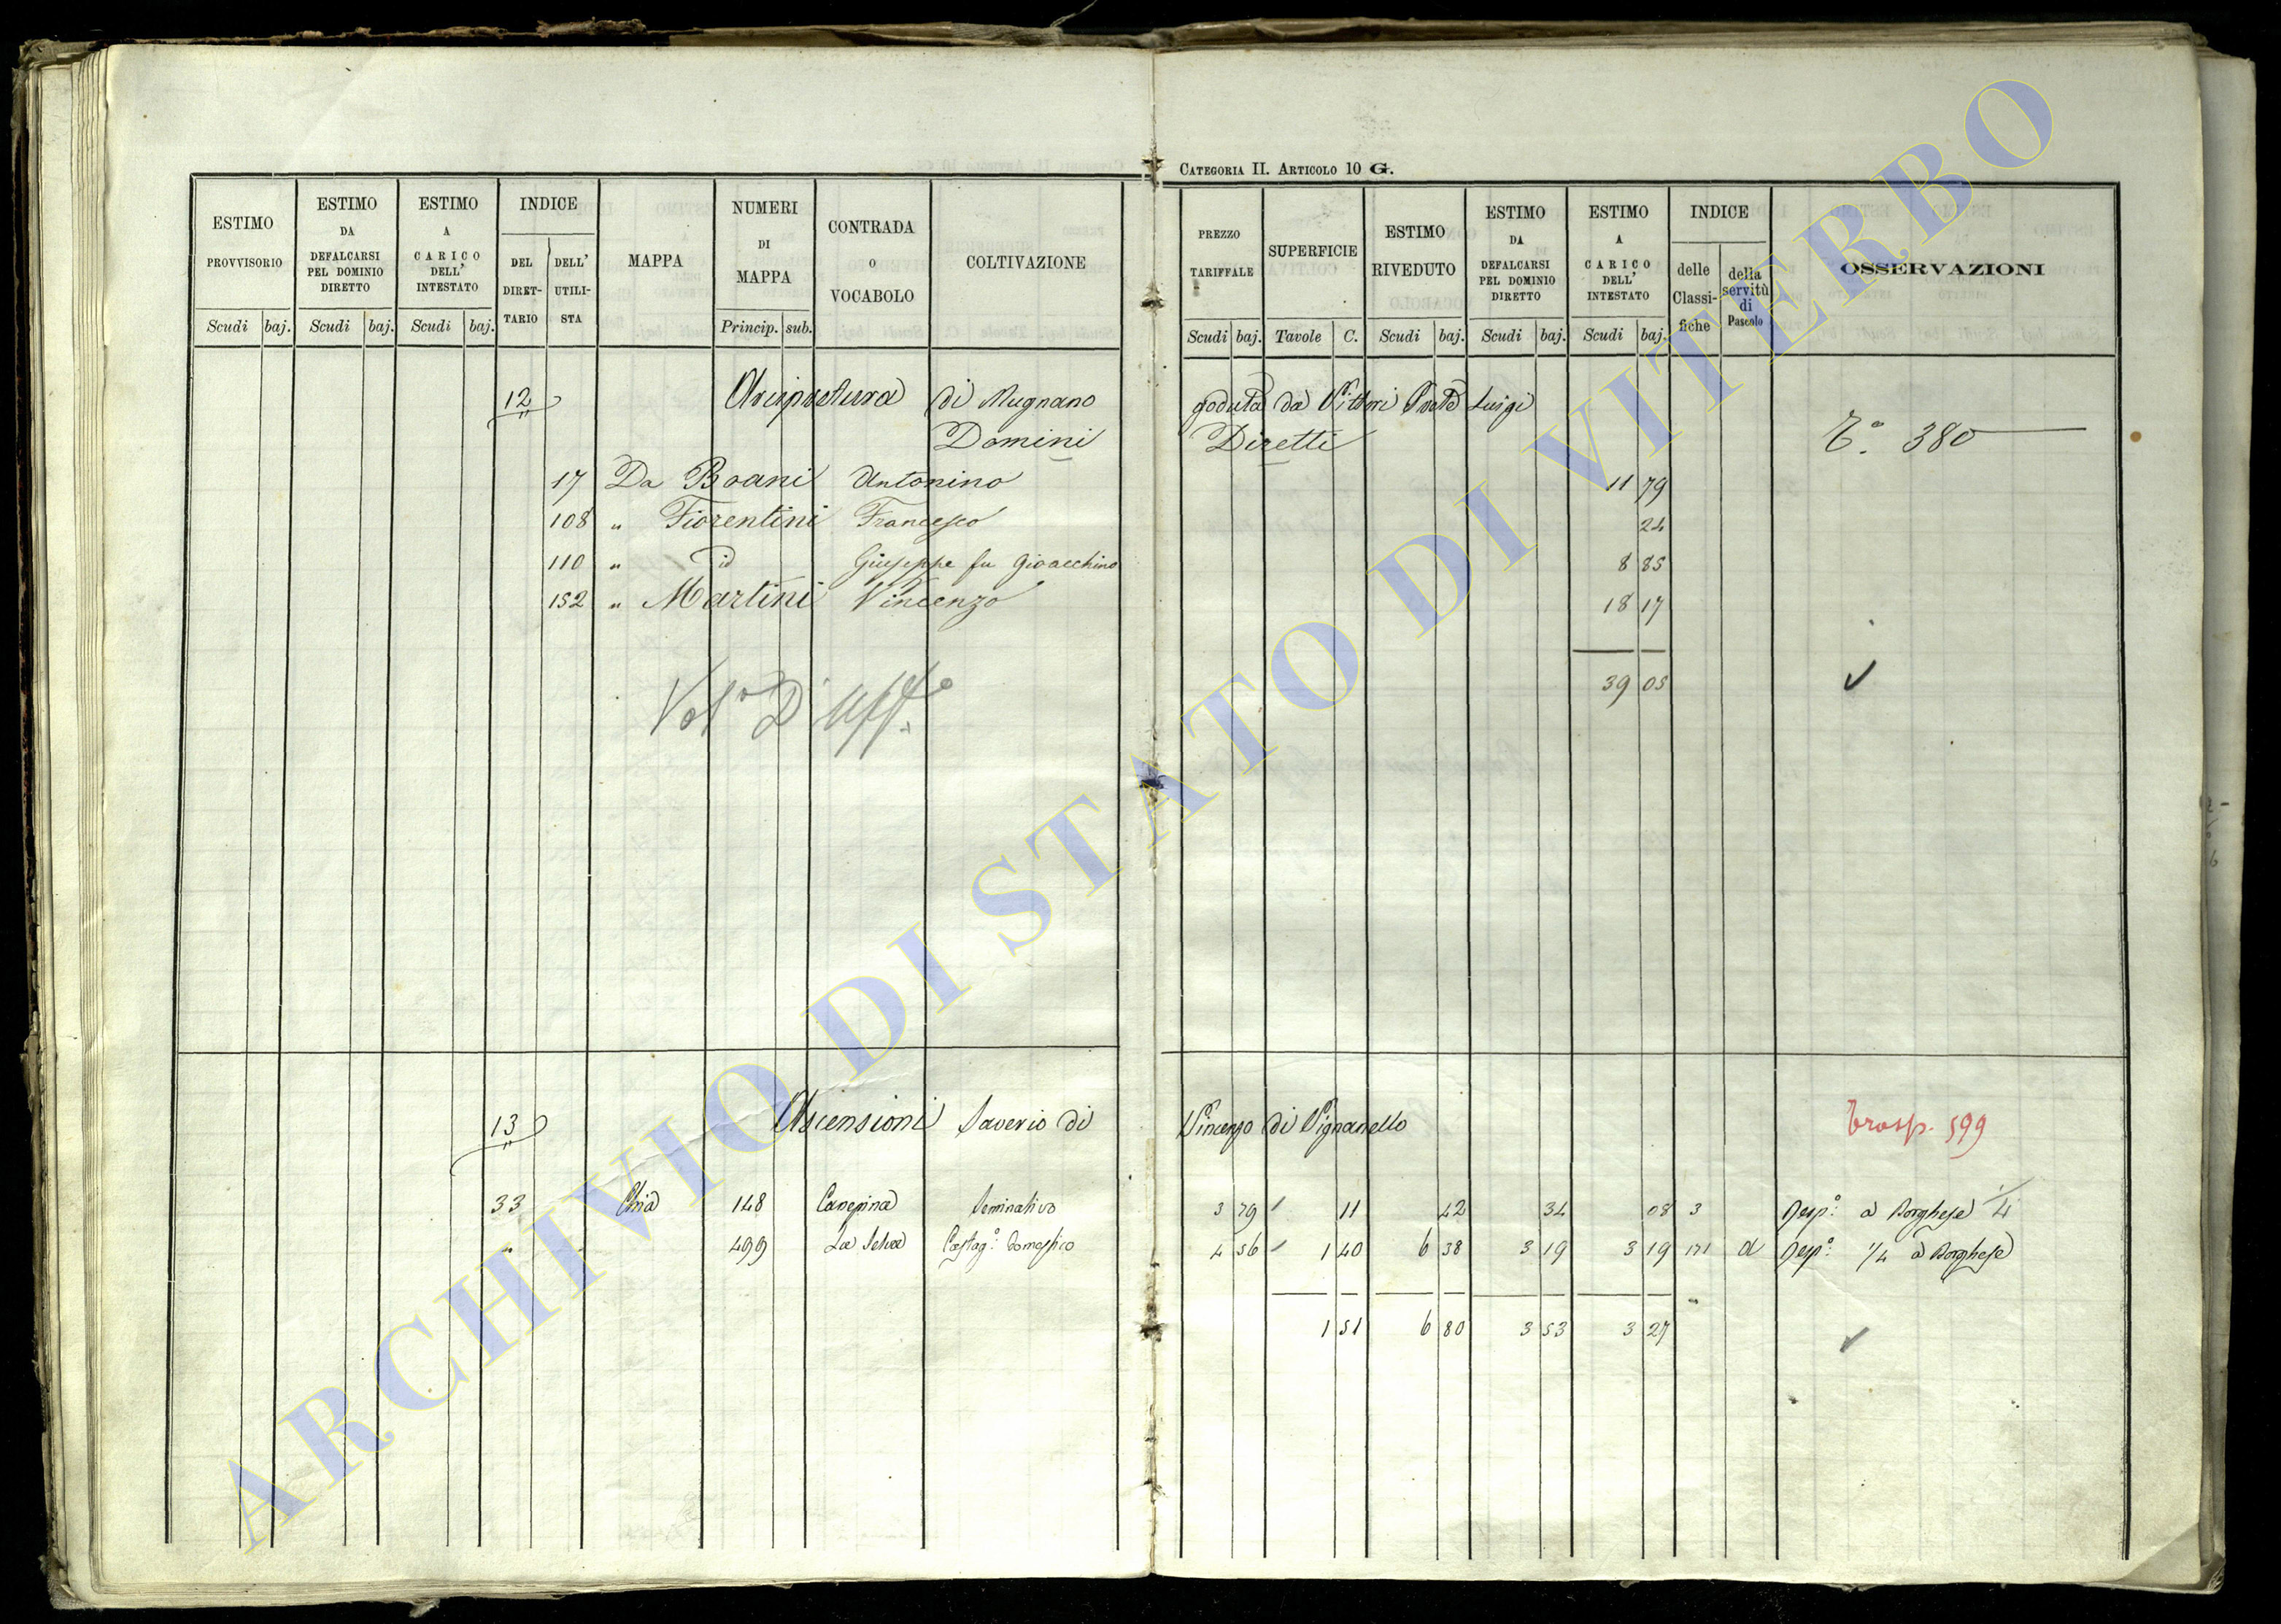 CATEGORIA II. ARTICOLO 10 G.
ESTIMO PROVVISORIO Scudi baj.
ESTIMO DA DEFALCARSI PEL DOMINIO DIRETTO Scudi baj.
ESTIMO A CARICO DELL' INTESTATO Scudi baj.
INDICE DEL DIRETTARIO DELL' UTILISTA
MAPPA
NUMERI DI MAPPA Princip. sub.
CONTRADA O VOCABOLO
COLTIVAZIONE
PREZZO TARIFFALE Scudi baj.
SUPERFICIE Tavole C.
ESTIMO RIVEDUTO Scudi baj.
ESTIMO DA DEFALCARSI PEL DOMINIO DIRETTO Scudi baj.
ESTIMO A CARICO DELL' INTESTATO Scudi baj.
INDICE delle Classifiche della servitù di Pascolo
OSSERVAZIONI
12 Arcipretura di Mugnano goduta da Vittori Luigi
Domini Diretti To. 380
17 Da Boani Antonino 11 79
108 " Fiorentini Francesco 24
110 " id Giuseppe fu Gioacchino 8 85
152 " Martini Vincenzo 18 17
39 05
13 Ascensioni Saverio di Vincenzo di Vignanello Trasp. 599
33 Chia 148 Canepina Seminativo 3 79 11 42 34 08 3 Desp.o a Borghese 1/4
" 499 La Selva Castag.o domestico 4 56 1 40 6 38 3 19 3 19 171 d Desp.o 1/4 a Borghese
1 51 6 80 3 53 3 27
ARCHIVIO DI STATO DI VITERBO